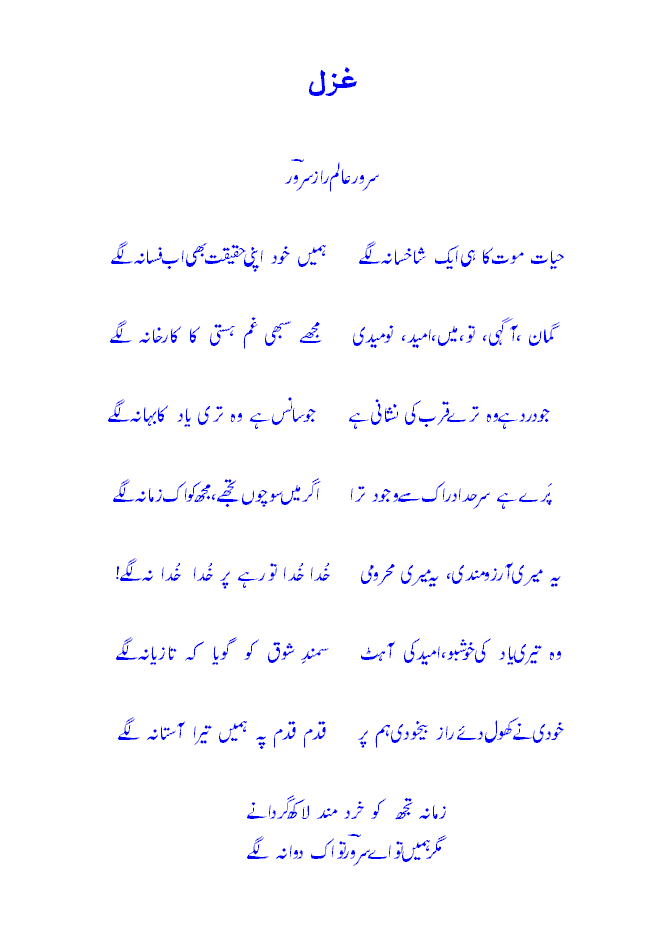 غزل
سرور عالم راز سرورؔ
حیات موت کا ہی ایک شاخسانہ لگے ہمیں خود اپنی حقیقت بھی اب فسانہ لگے
گمان ،آگہی، تو،میں،امید، نومیدی مجھے سبھی غم ہستی کا کارخانہ لگے
جو درد ہے وہ ترے قرب کی نشانی ہے جو سانس ہے وہ تری یاد کا بہانہ لگے
پَرے ہے سرحد ادراک سے وجود ترا اگر میں سوچوں تجھے، مجھ کو اک زمانہ لگے
یہ میری آرزومندی، یہ میری محرومی خُدا خُدا تو رہے پر خُدا خُدا نہ لگے!
وہ تیری یاد کی خوشبو،امید کی آہٹ سمندِ شوق کو گویا کہ تازیانہ لگے
خودی نے کھول دئے راز بیخودی ہم پر قدم قدم پہ ہمیں تیرا آستانہ لگے
زمانہ تجھ کو خرد مند لاکھ گردانے
مگر ہمیں تو اے سرورؔ تو اک دوانہ لگے